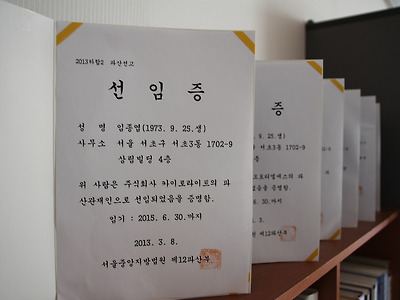 2013하합2 파산선고
선 임 증
성 명 임종엽(1973. 9. 25.생)
사무소 서울 서초구 서초3동 1702-9
삼림빌딩 4층
위 사람은 주식회사 카이로라이프의 파
산관재인으로 선임되었음을 증명함.
임기 : 2015. 6. 30.까지
2013. 3. 8.
서울중앙지방법원 제12파산부
증
9. 25.생)
서초3동 1702-9
4층
음을 증명함.
30.까지
3.
제12파산부